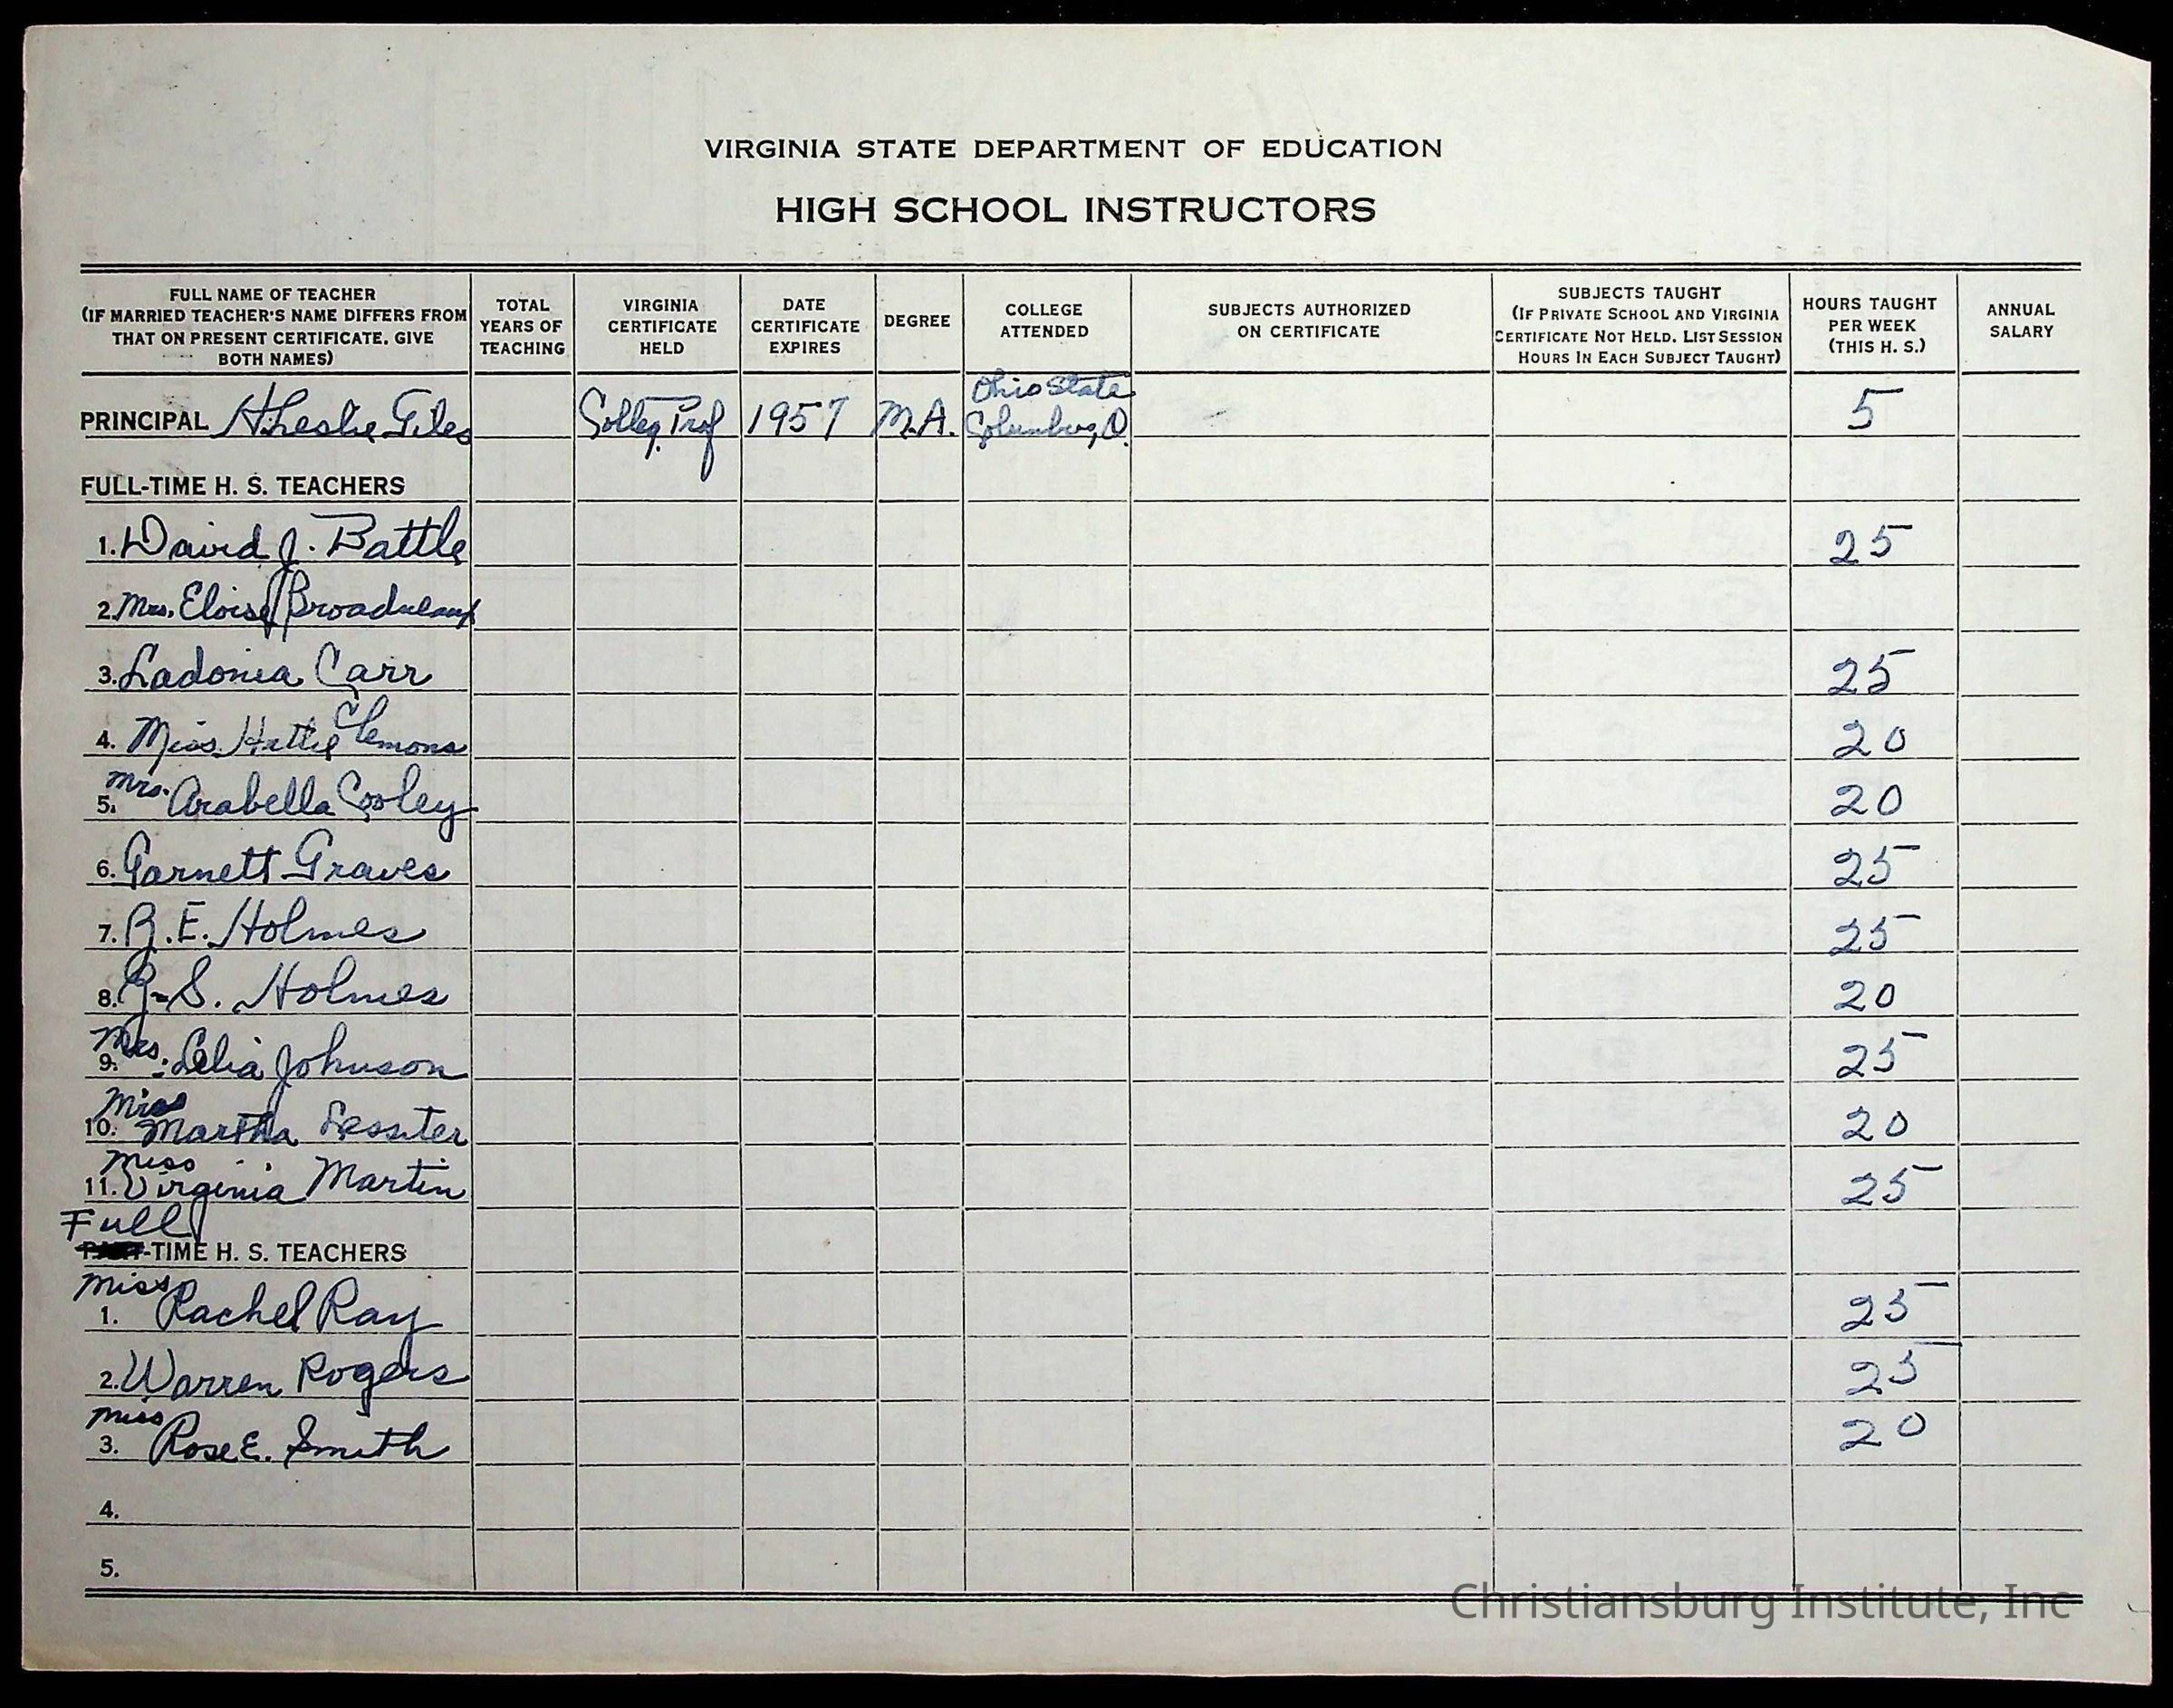 VIRGINIA STATE DEPARTMENT OF EDUCATION
HIGH SCHOOL INSTRUCTORS
FULL NAME OF TEACHER (IF MARRIED TEACHER'S NAME DIFFERS FROM THAT ON PRESENT CERTIFICATE, GIVE BOTH NAMES) TOTAL YEARS OF TEACHING VIRGINIA CERTIFICATE HELD DATE CERTIFICATE EXPIRES DEGREE COLLEGE ATTENDED SUBJECTS AUTHORIZED ON CERTIFICATE SUBJECTS TAUGHT (IF PRIVATE SCHOOL AND VIRGINIA CERTIFICATE NOT HELD, LIST SESSION HOURS IN EACH SUBJECT TAUGHT) HOURS TAUGHT PER WEEK (THIS H. S.) ANNUAL SALARY
PRINCIPAL H. Leslie Giles Colleg. Prof 1957 M.A. Ohio State Columbus, O. 5
FULL-TIME H. S. TEACHERS
1. David J. Battle 25
2. Mrs. Eloise
3. Ladonia Carr 25
4. Miss Hattie Clemons 20
5. Mrs. Arabella Cooley 20
6. Garnett Graves 25
7. R. E. Holmes 25
8. S. Holmes 20
9. Mrs. Johnson 25
10. Miss Martha 20
11. Miss Virginia Martin 25
Full
-TIME H. S. TEACHERS
1. Miss Rachel Ray 25
2. Warren Rogers 25
3. Miss Rose E. Smith 20
4.
5.
Christiansburg Institute, Inc